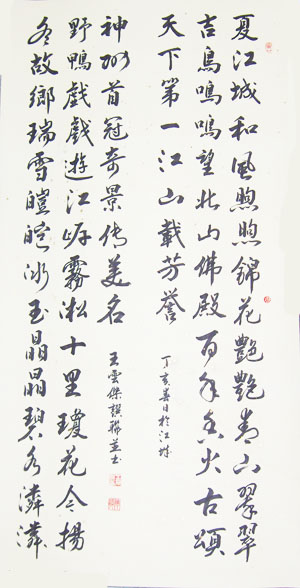 夏江城和風煦煦錦花艷艷青山翠翠
吉鳥鳴鳴望北山佛殿百年香火古頌
天下第一江山載芳譽
丁亥春日於江城
冬故鄉瑞雪皚皚冰玉晶晶碧水潾潾
野鴨戲戲遊江岸霧淞十里瓊花今揚
神州首冠奇景传美名
王雲傑撰聯並書